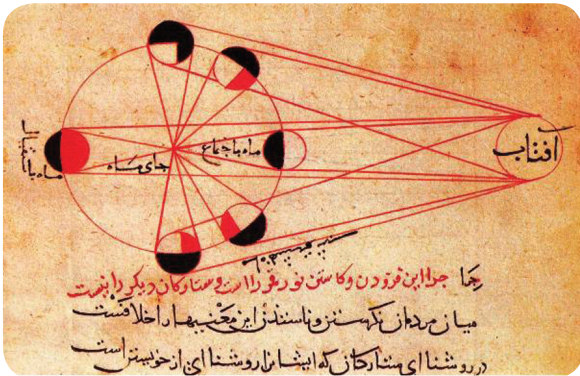 آفتاب
ماه باجتماع
جای ماه
ماه باستقبال
جرا این فزودن و کاستن نور قمر را است و ستارکان دیکر را نیست
میان مردمان نکرستن این خلافست
در روشنای ستارکان که ایشانرا روشنای از خویشتن است